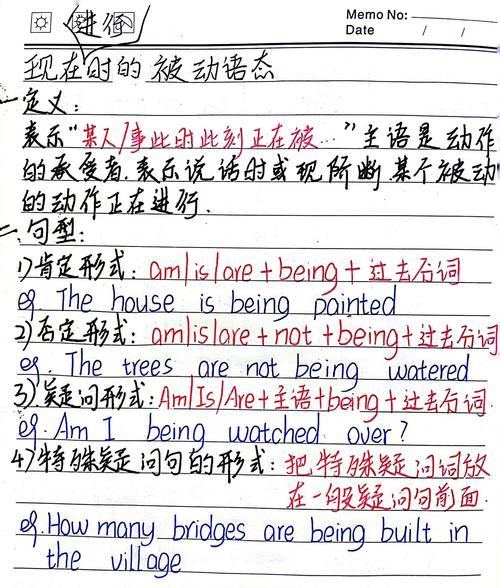 Memo No:
Date / /
进行
现在时的被动语态
定义:
表示"某人/事此时此刻正在被…"主语是动作
的承受者.表示说话时或现阶断某个被动
的动作正在进行.
句型:
1)肯定形式: am/is/are+being+过去分词
eg. The house is being painted
2)否定形式: am/is/are+not+being+过去分词
eg. The trees are not being watered
3)疑问形式: Am/Is/Are+主语+being+过去分词.
eg. Am I being watched over?
4)特殊疑问句的形式: 把特殊疑问词放
在一般疑问句前面.
eg. How many bridges are being built in
the village